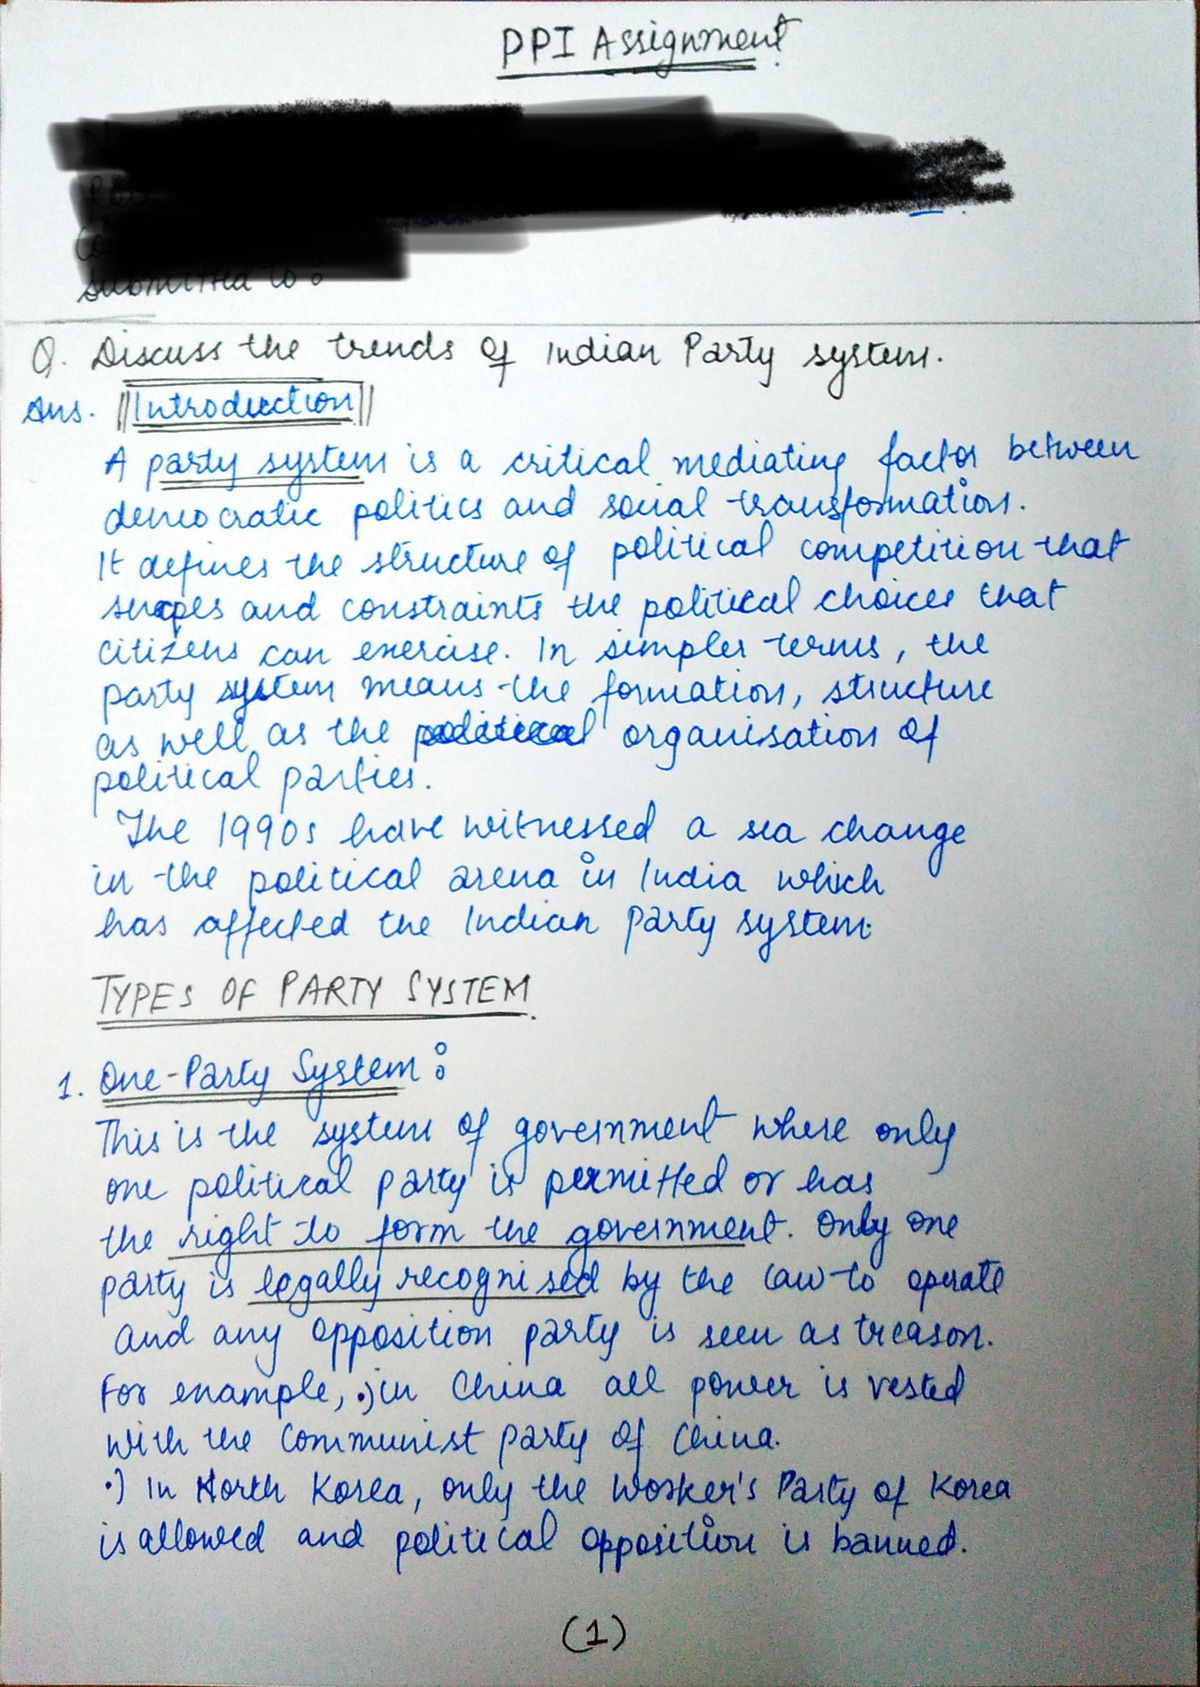 PPI Assignment
submitted to :
Q. Discuss the trends of Indian Party system.
Ans. Introduction
A party system is a critical mediating factor between
democratic politics and social transformation.
It defines the structure of political competition that
shapes and constraints the political choices that
citizens can exercise. In simpler terms, the
party system means the formation, structure
as well as the organisation of
political parties.
The 1990s have witnessed a sea change
in the political arena in India which
has affected the Indian Party system.
TYPES OF PARTY SYSTEM
1. One-Party System :
This is the system of government where only
one political party is permitted or has
the right to form the government. Only one
party is legally recognised by the law to operate
and any opposition party is seen as treason.
For example, •) in China all power is vested
with the Communist Party of China.
•) In North Korea, only the Worker's Party of Korea
is allowed and political opposition is banned.
(1)